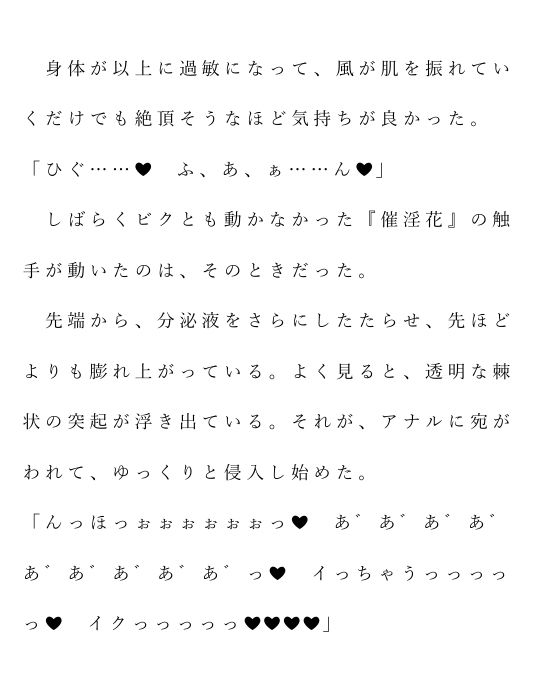 身体が以上に過敏になって、風が肌を振れてい
くだけでも絶頂そうなほど気持ちが良かった。
「ひぐ……♥　ふ、あ、ぁ……ん♥」
　しばらくビクとも動かなかった『催淫花』の触
手が動いたのは、そのときだった。
　先端から、分泌液をさらにしたたらせ、先ほど
よりも膨れ上がっている。よく見ると、透明な棘
状の突起が浮き出ている。それが、アナルに宛が
われて、ゆっくりと侵入し始めた。
「んっほっぉぉぉぉぉぉっ♥　あ゛あ゛あ゛あ゛
あ゛あ゛あ゛あ゛あ゛っ♥　イっちゃうっっっっ
っ♥　イクっっっっっ♥♥♥♥」